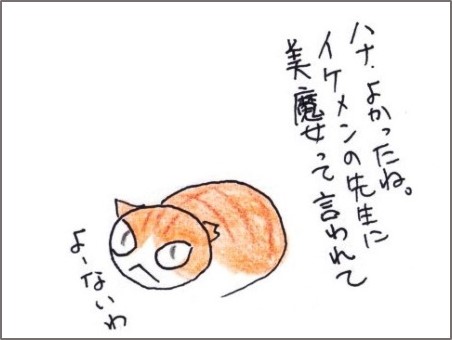 ハナ、よかったね。
イケメンの先生に
美魔女って言われて
よーないわ